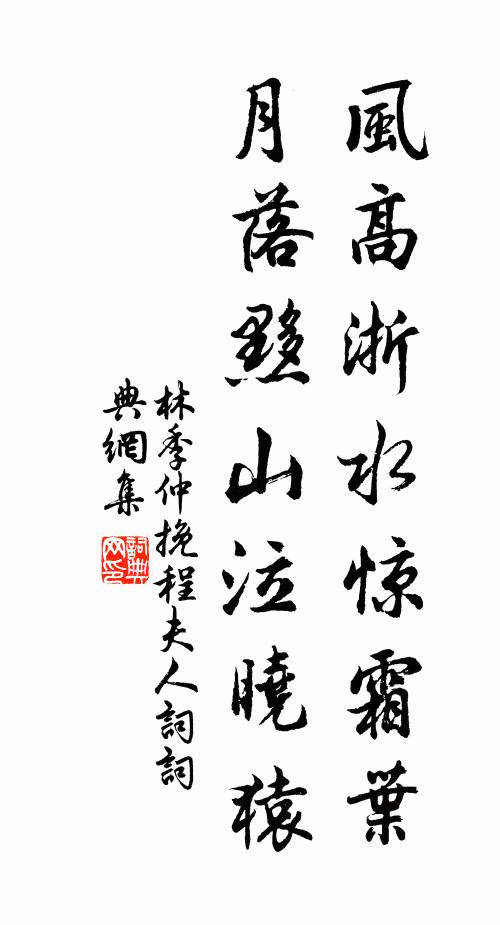 風高浙水惊霜葉
月落黟山泣曉猿
林季仲挽程夫人詞詞
典網集
詞典
网印